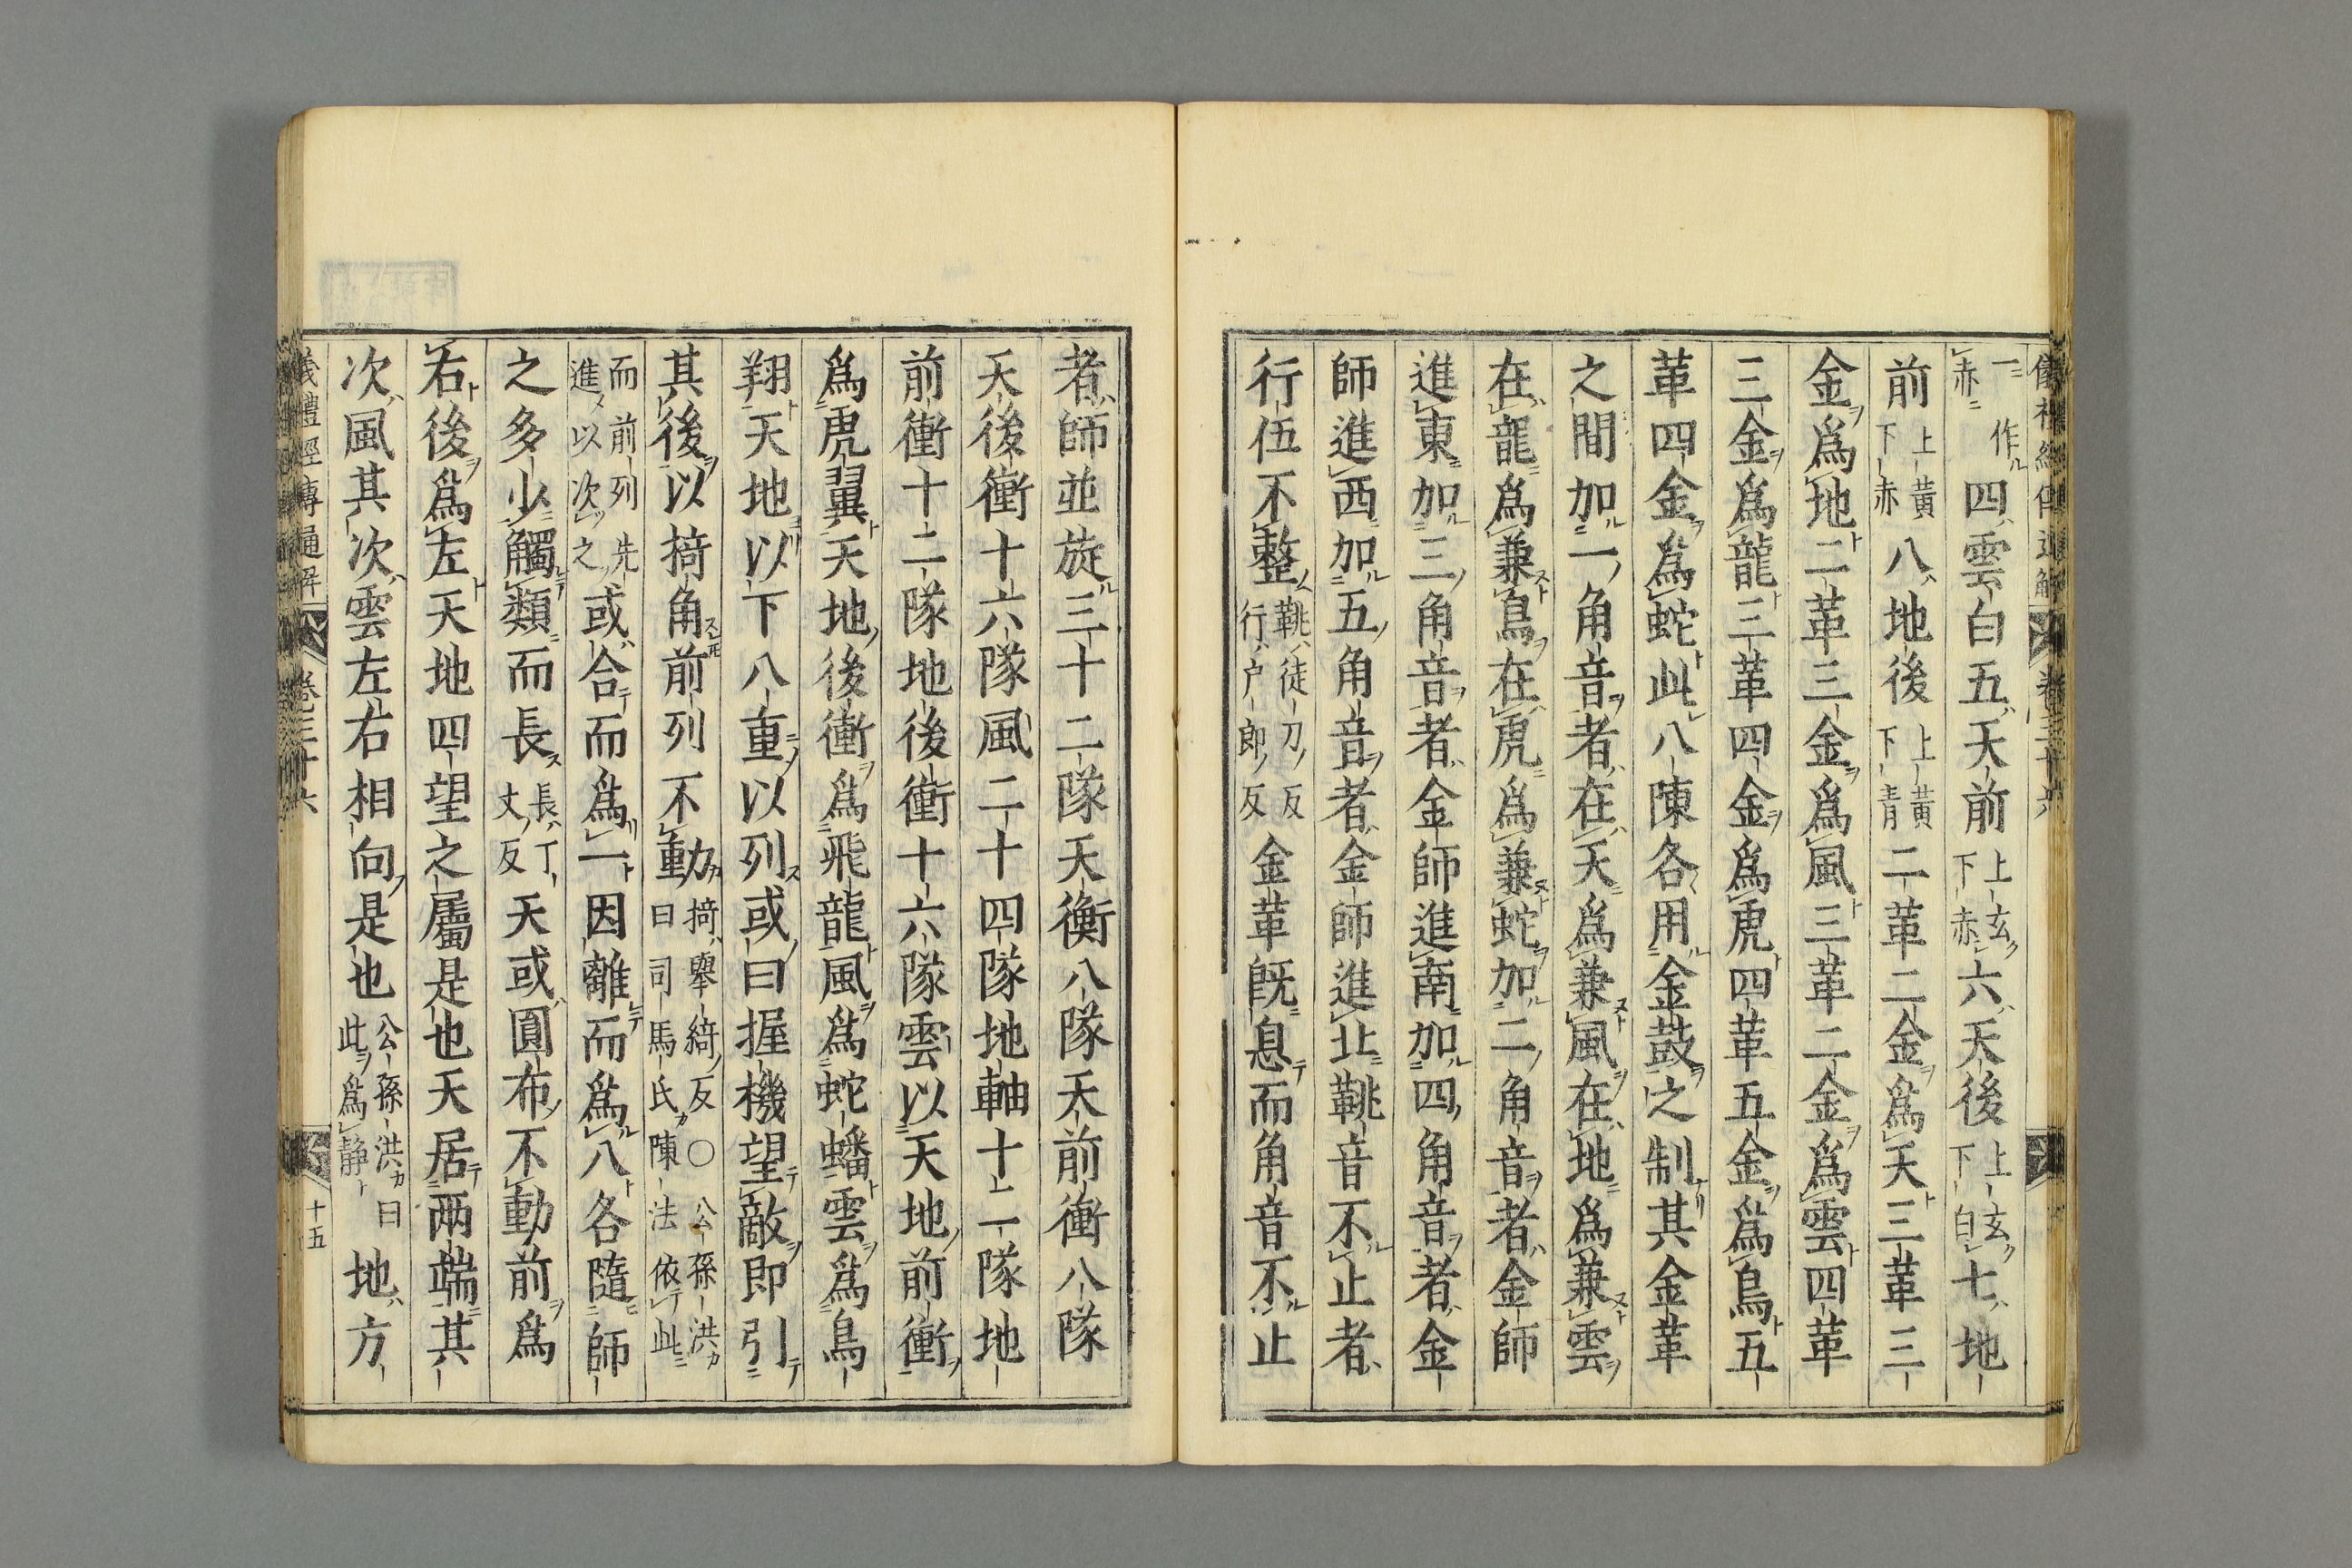 儀禮經傳通解 卷三十六
一作赤四雲白五天前上玄下赤六天後上玄下白七地
前上黃下赤八地後上黃下青二革二金爲天三革三
金爲地二革三金爲風三革二金爲雲四革
三金爲龍三革四金爲虎四革五金爲鳥五
革四金爲蛇此八陳各用金鼓之制其金革
之間加一角音者在天爲兼風在地爲兼雲
在龍爲兼鳥在虎爲兼蛇加二角音者金師
進東加三角音者金師進南加四角音者金
師進西加五角音者金師進北鞉音不止者
行伍不整鞉徒刀反行戶郎反金革既息而角音不止
者師並旋三十二隊天衡八隊天前衝八隊
天後衝十六隊風二十四隊地軸十二隊地
前衝十二隊地後衝十六隊雲以天地前衝
爲虎翼天地後衝爲飛龍風爲蛇蟠雲爲鳥
翔天地以下八重以列或曰握機望敵即引
其後以掎角前列不動掎舉綺反○公孫洪曰司馬氏陳法依此
而前列先進以次之或合而爲一因離而爲八各隨師
之多少觸類而長長丁丈反天或圓布不動前爲
右後爲左天地四望之屬是也天居兩端其
次風其次雲左右相向是也公孫洪曰此爲靜地方
儀禮經傳通解 卷三十六 十五